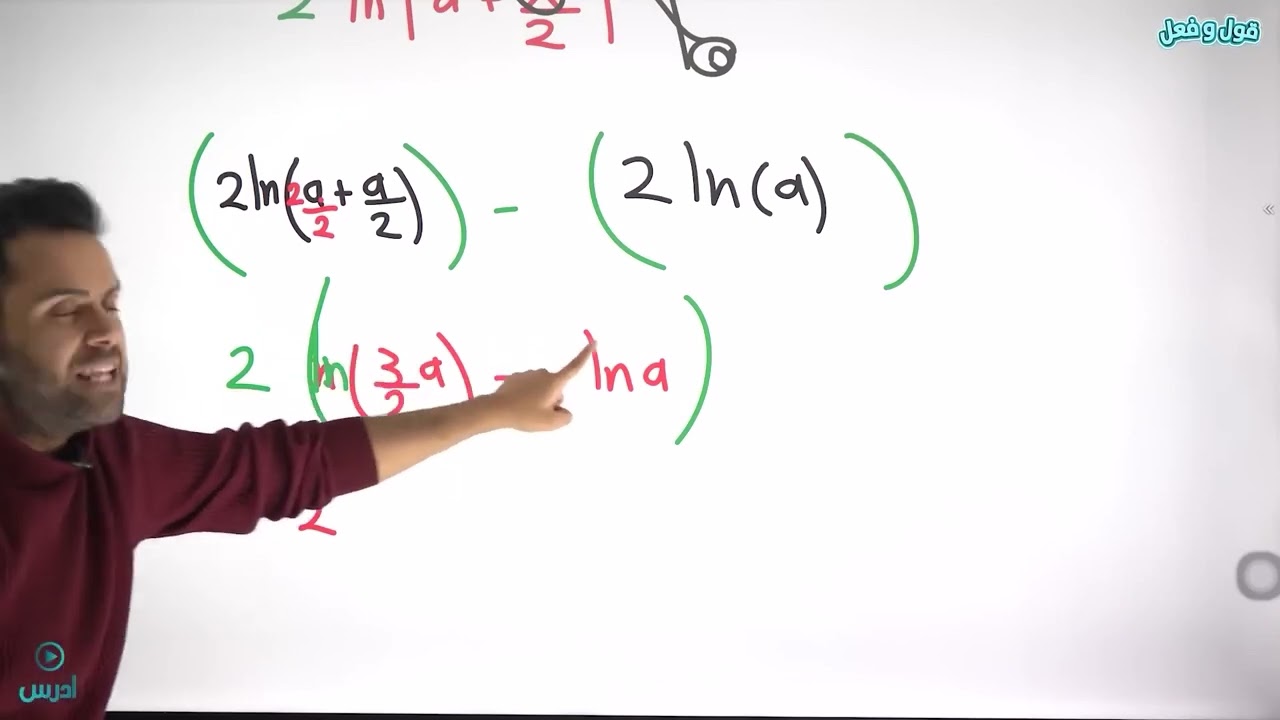 2 ln|a + a/2|
قول و فعل
(2ln(2a/2 + a/2)) - (2 ln(a))
2 (ln(3/2 a) - ln a)
2
ادرس